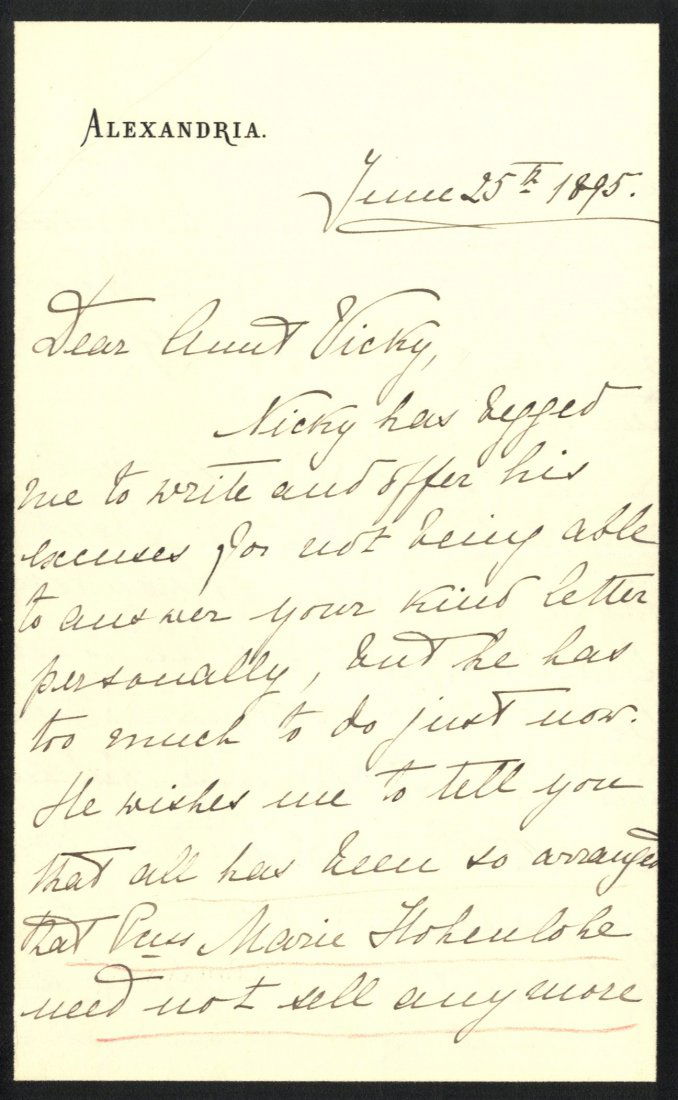 ALEXANDRIA.
June 25th 1895.
Dear Aunt Vicky,
Nicky has begged
me to write and offer his
excuses for not being able
to answer your kind letter
personally, but he has
too much to do just now.
He wishes me to tell you
that all has been so arranged
that Pcess Marie Hohenlohe
need not sell any more